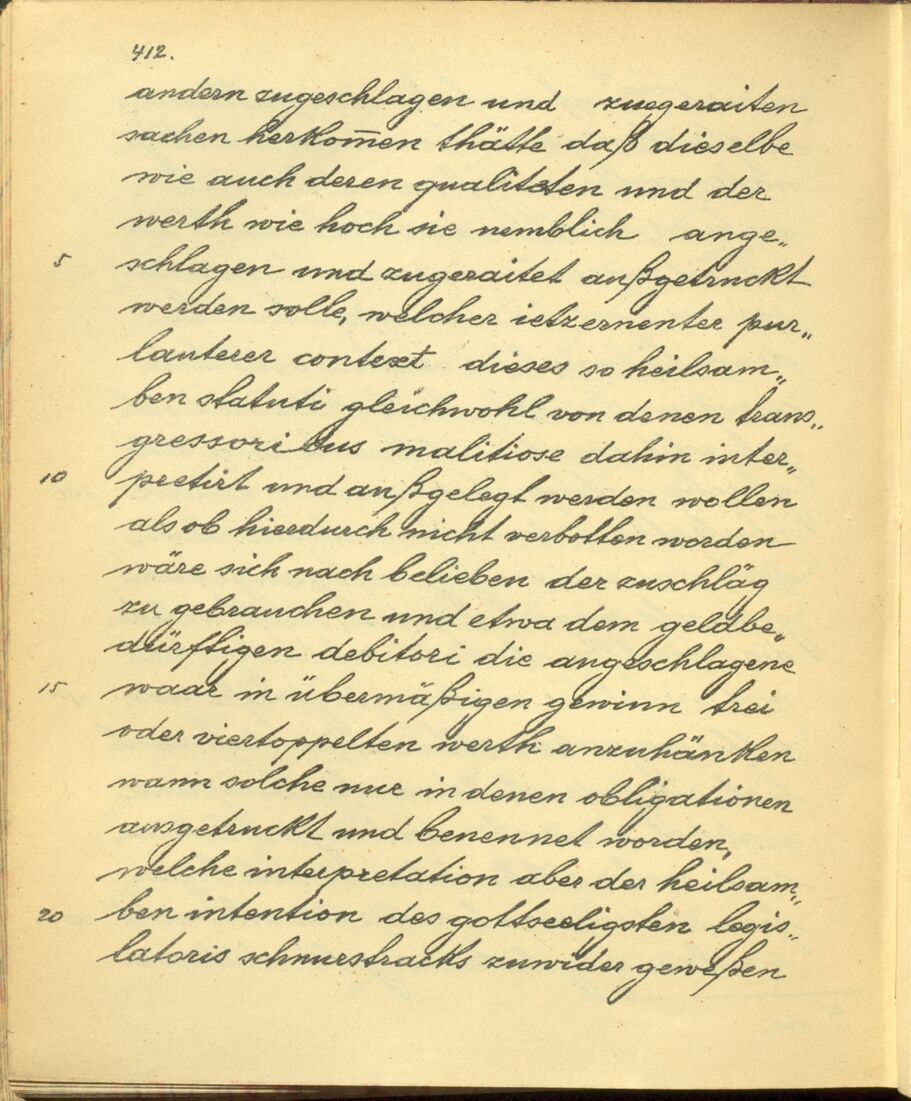 412.
andern zugeschlagen und zuegeraiten
sachen herkom̄en thätte daß dieselbe
wie auch deren qualiteten und der
werth wie hoch sie nemblich ange„
5 schlagen und zugeraitet außgetruckt
werden solle, welcher ietzernenter pur„
lauterer context dieses so heilsam„
ben statuti gleichwohl von denen trans„
gressoribus malitiose dahin inter„
10 pretirt und außgelegt werden wollen
als ob hierdurch nicht verbotten worden
wäre sich nach belieben der zuschläg
zu gebrauchen und etwa dem geldbe„
dürftigen debitori die angeschlagene
15 waar in übermäßigen gewinn trei
oder viertoppelten werth anzuhänken
wann solche nur in denen obligationen
ausgetruckt und benennet worden,
welche interpretation aber der heilsam„
20 ben intention des gottseeligsten legis„
latoris schnurstracks zuwider geweßen